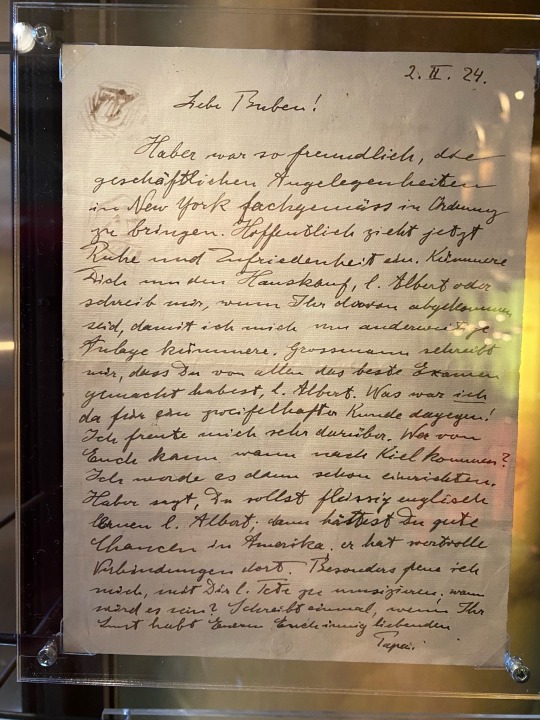 2. II. 24.
Liebe Buben!
Haber war so freundlich, die
geschäftlichen Angelegenheiten
in New York fachgemäss in Ordnung
zu bringen. Hoffentlich zieht jetzt
Ruhe und Zufriedenheit ein. Kümmere
Dich um den Hauskauf, l. Albert oder
schreib mir, wenn Ihr davon abgekommen
seid, damit ich mich um anderweitige
Anlage kümmere. Grossmann schreibt
mir, dass Du von allen das beste Examen
gemacht habest, l. Albert. Was war ich
da für ein zweifelhafter Kunde dagegen!
Ich freute mich sehr darüber. Wer von
Euch kann wann nach Kiel kommen?
Ich werde es dann schon einrichten.
Haber sagt, Du sollst fleissig englisch
lernen l. Albert; dann hättest Du gute
Chancen in Amerika. er hat wertvolle
Verbindungen dort. Besonders freue ich
mich, mit Dir l. Tete zu musizieren. wann
wird es sein? Schreibt einmal, wenn Ihr
Lust habt Euern Euch innig liebenden
Papa.